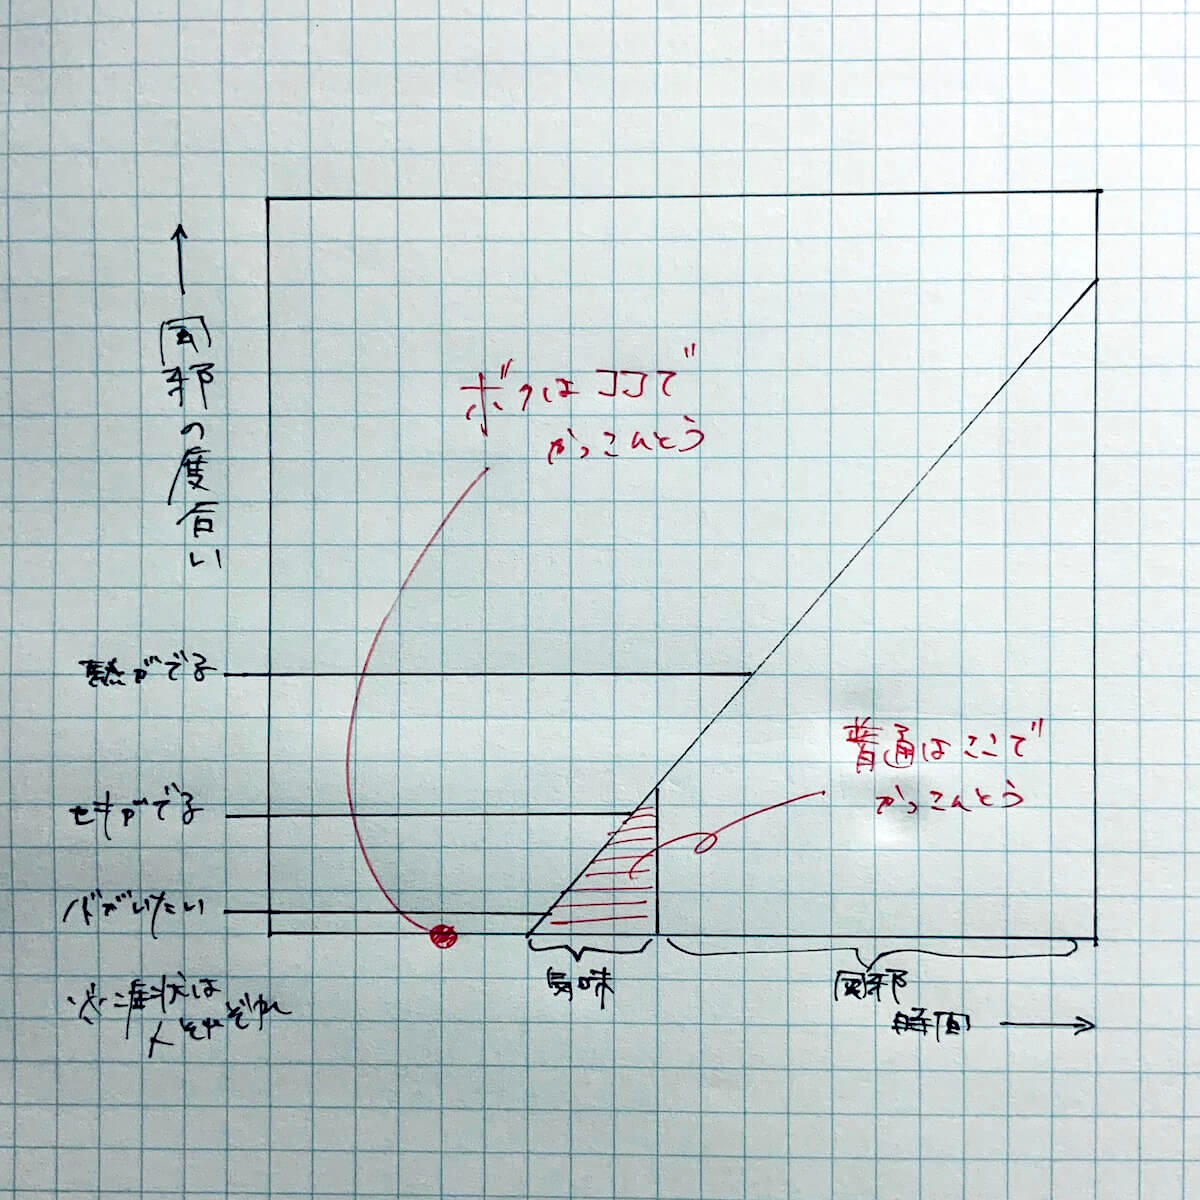 風邪の度合い
ボクはココで
かっこんとう
熱がでる
普通はここで
かっこんとう
セキがでる
ノドがいたい
気味
風邪
時間
※症状は
人それぞれ